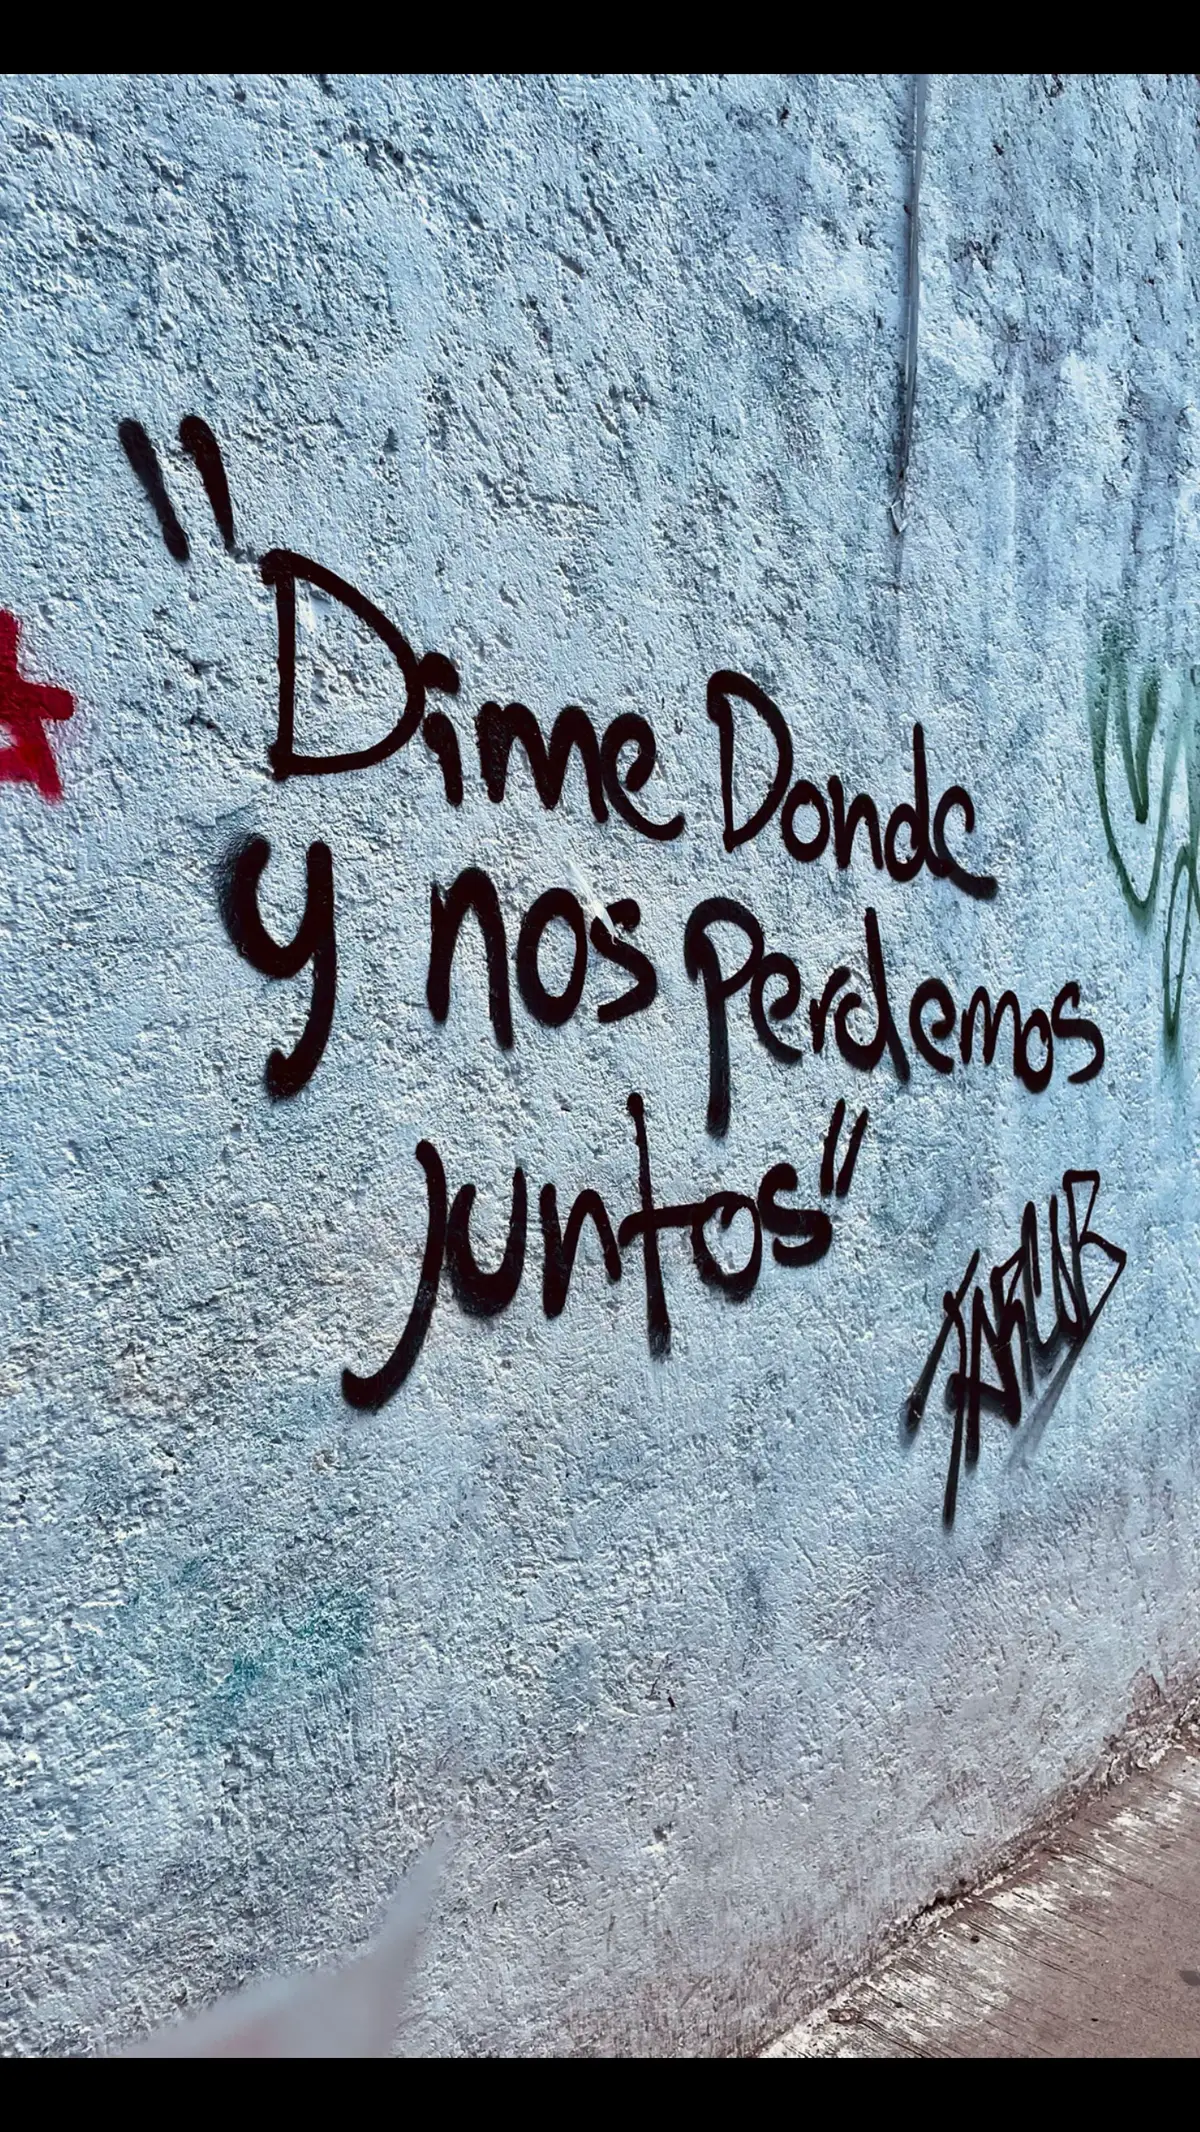 "Dime Donde
y nos Perdemos
Juntos"